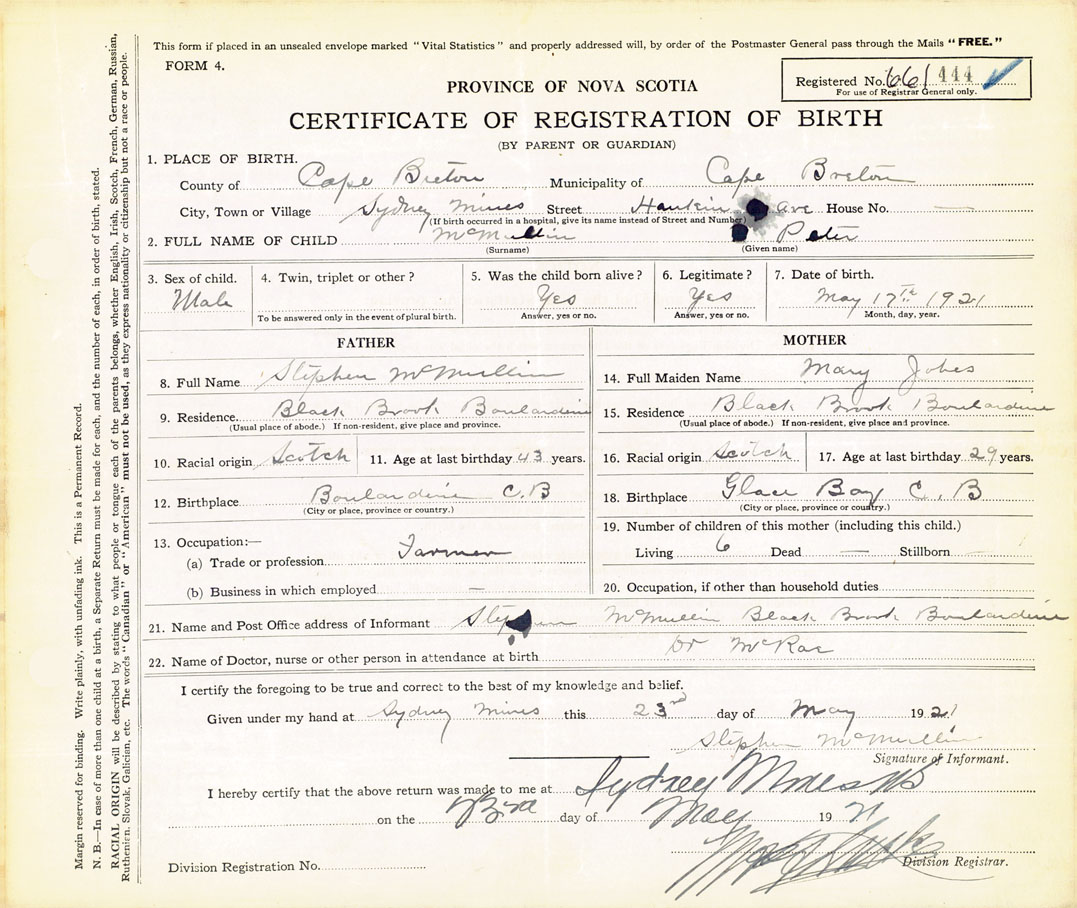 This form if placed in an unsealed envelope marked "Vital Statistics" and properly addressed will, by order of the Postmaster General pass through the Mails "FREE."
FORM 4.
Registered No. 661 444
For use of Registrar General only.
PROVINCE OF NOVA SCOTIA
CERTIFICATE OF REGISTRATION OF BIRTH
(BY PARENT OR GUARDIAN)
1. PLACE OF BIRTH.
County of Cape Breton Municipality of Cape Breton
City, Town or Village Sydney Mines Street Hankin Ave House No. —
(If birth occurred in a hospital, give its name instead of Street and Number)
2. FULL NAME OF CHILD McMullin Peter
(Surname) (Given name)
3. Sex of child. 4. Twin, triplet or other? 5. Was the child born alive? 6. Legitimate? 7. Date of birth.
Male Yes Yes May 17th 1921
To be answered only in the event of plural birth. Answer, yes or no. Answer, yes or no. Month, day, year.
FATHER
8. Full Name Stephen McMullin
9. Residence. Black Brook Boulardrie
(Usual place of abode.) If non-resident, give place and province.
10. Racial origin Scotch 11. Age at last birthday 43 years.
12. Birthplace Boulardrie C.B
(City or place, province or country.)
13. Occupation:—
(a) Trade or profession Farmer
(b) Business in which employed —
MOTHER
14. Full Maiden Name Mary
15. Residence Black Brook Boulardrie
(Usual place of abode.) If non-resident, give place and province.
16. Racial origin Scotch 17. Age at last birthday 29 years.
18. Birthplace Glace Bay C. B
(City or place, province or country.)
19. Number of children of this mother (including this child.)
Living 6 Dead — Stillborn —
20. Occupation, if other than household duties
21. Name and Post Office address of Informant Stephen McMullin Black Brook Boulardrie
22. Name of Doctor, nurse or other person in attendance at birth Dr McRae
I certify the foregoing to be true and correct to the best of my knowledge and belief.
Given under my hand at Sydney Mines this 23rd day of May 1921
Stephen McMullin
Signature of Informant.
I hereby certify that the above return was made to me at Sydney Mines NS
on the 23rd day of May 1921
Division Registrar.
Division Registration No.
Margin reserved for binding. Write plainly, with unfading ink. This is a Permanent Record.
N. B.—In case of more than one child at a birth, a Separate Return must be made for each, and the number of each, in order of birth, stated.
RACIAL ORIGIN will be described by stating to what people or tongue each of the parents belongs, whether English, Irish, Scotch, French, German, Russian,
Ruthenian, Slovak, Galician, etc. The words "Canadian" or "American" must not be used, as they express nationality or citizenship but not a race or people.